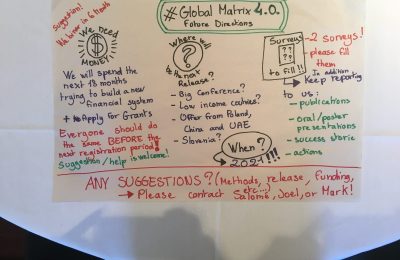 Suggestion!
# Global Matrix 4.0.
Future Directions
We need
$
MONEY!
We will spend the
next 18 months
trying to build a new
financial system
+ to Apply for Grant's
Everyone should do
the same BEFORE
next registration period!
Suggestion/help is welcome!
Where will
?
be the next
Release?
- Big Conference?
- Low income countries?
- Offer from Poland,
China and UAE
- Slovenia?
When?
2021!!!
Surveys
? ?
? ?
to fill!!
- 2 surveys!
please fill
them
In addition
Keep reporting
to us:
- publications
- oral/poster
presentations
- success stories
- actions
ANY SUGGESTIONS? (Methods, release, funding,
etc...)
→ Please contact Salomé, Joel, or Mark!